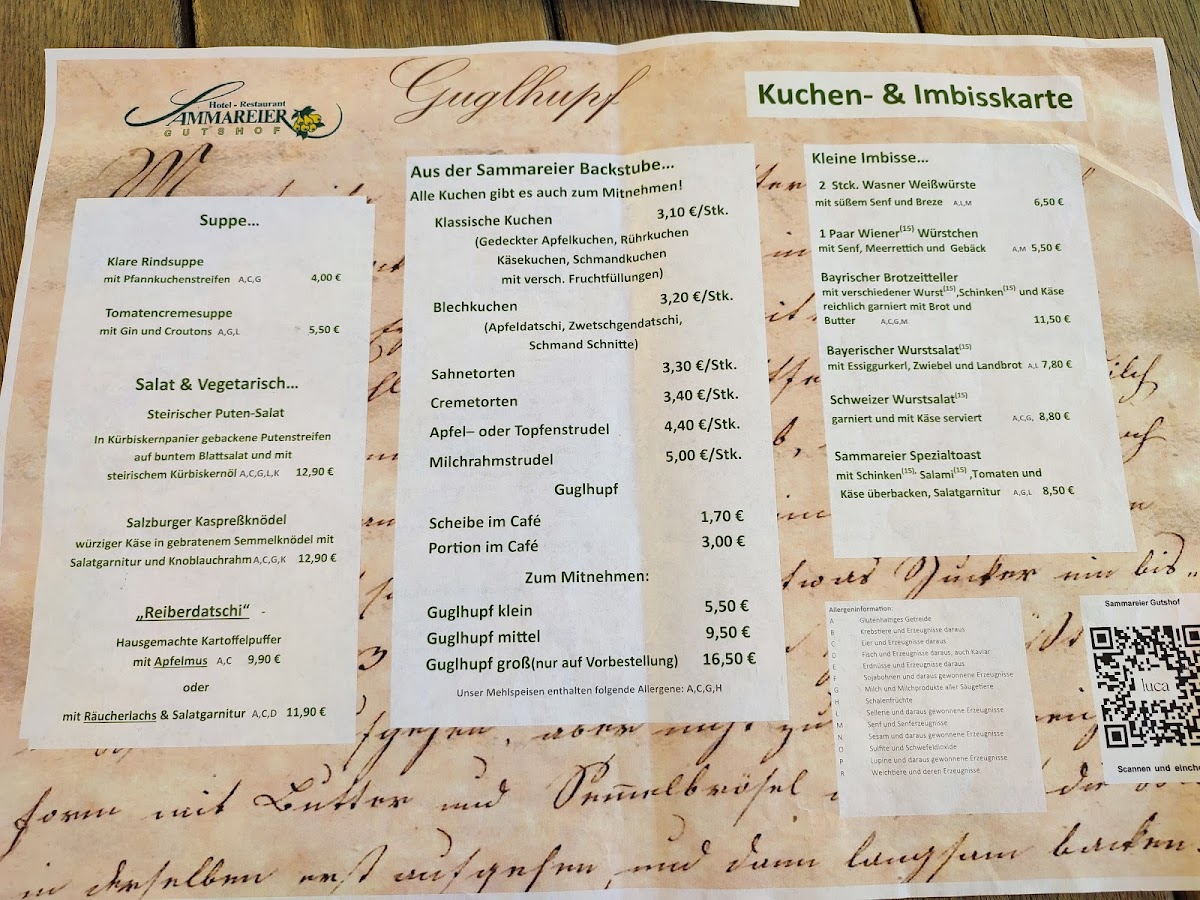 Hotel - Restaurant
SAMMAREIER
GUTSHOF
Guglhupf
Kuchen- & Imbisskarte
Suppe...
Klare Rindsuppe
mit Pfannkuchenstreifen A,C,G 4,00 €
Tomatencremesuppe
mit Gin und Croutons A,G,L 5,50 €
Salat & Vegetarisch...
Steirischer Puten-Salat
In Kürbiskernpanier gebackene Putenstreifen
auf buntem Blattsalat und mit
steirischem Kürbiskernöl A,C,G,L,K 12,90 €
Salzburger Kaspreßknödel
würziger Käse in gebratenem Semmelknödel mit
Salatgarnitur und Knoblauchrahm A,C,G,K 12,90 €
„Reiberdatschi“ -
Hausgemachte Kartoffelpuffer
mit Apfelmus A,C 9,90 €
oder
mit Räucherlachs & Salatgarnitur A,C,D 11,90 €
Aus der Sammareier Backstube...
Alle Kuchen gibt es auch zum Mitnehmen!
Klassische Kuchen 3,10 €/Stk.
(Gedeckter Apfelkuchen, Rührkuchen
Käsekuchen, Schmandkuchen
mit versch. Fruchtfüllungen)
Blechkuchen 3,20 €/Stk.
(Apfeldatschi, Zwetschgendatschi,
Schmand Schnitte)
Sahnetorten 3,30 €/Stk.
Cremetorten 3,40 €/Stk.
Apfel– oder Topfenstrudel 4,40 €/Stk.
Milchrahmstrudel 5,00 €/Stk.
Guglhupf
Scheibe im Café 1,70 €
Portion im Café 3,00 €
Zum Mitnehmen:
Guglhupf klein 5,50 €
Guglhupf mittel 9,50 €
Guglhupf groß(nur auf Vorbestellung) 16,50 €
Unser Mehlspeisen enthalten folgende Allergene: A,C,G,H
Kleine Imbisse...
2 Stck. Wasner Weißwürste
mit süßem Senf und Breze A,L,M 6,50 €
1 Paar Wiener(15) Würstchen
mit Senf, Meerrettich und Gebäck A,M 5,50 €
Bayrischer Brotzeitteller
mit verschiedener Wurst(15),Schinken(15) und Käse
reichlich garniert mit Brot und
Butter A,C,G,M 11,50 €
Bayerischer Wurstsalat(15)
mit Essiggurkerl, Zwiebel und Landbrot A,L 7,80 €
Schweizer Wurstsalat(15)
garniert und mit Käse serviert A,C,G, 8,80 €
Sammareier Spezialtoast
mit Schinken(15), Salami(15) ,Tomaten und
Käse überbacken, Salatgarnitur A,G,L 8,50 €
Allergeninformation:
A Glutenhaltiges Getreide
B Krebstiere und Erzeugnisse daraus
C Eier und Erzeugnisse daraus
D Fisch und Erzeugnisse daraus, auch Kaviar
E Erdnüsse und Erzeugnisse daraus
F Sojabohnen und daraus gewonnene Erzeugnisse
G Milch und Milchprodukte aller Säugetiere
H Schalenfrüchte
L Sellerie und daraus gewonnene Erzeugnisse
M Senf und Senferzeugnisse
N Sesam und daraus gewonnene Erzeugnisse
O Sulfite und Schwefeldioxide
P Lupine und daraus gewonnene Erzeugnisse
R Weichtiere und deren Erzeugnisse
Sammareier Gutshof
luca
Scannen und einche
etwas Zucker ein bis
aufgehen, aber nicht zu
form mit Butter und Semmelbrösel die
in derselben erst aufgehen und dann langsam backen.